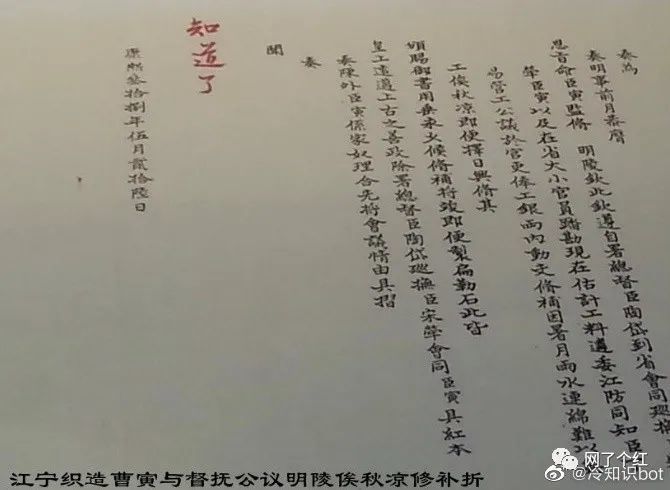 奏為
奏明事前月恭膺
恩旨命臣寅監修　明陵欽此欽遵自署總督臣陶岱到省會同巡撫
犖臣寅以及在省大小官員踏勘現在估計工料遵委江防同知臣
易營工公議於官吏俸工銀兩內動支修補因署月雨水連綿難以
工俟秋凉即便擇日興修其
頒賜御書用垂永久候修補將竣即便製扁勒石此皆
皇上遠遵上古之善政除署總督臣陶岱巡撫臣宋犖會同臣寅具紅本
奏陳外臣寅係家奴理合先將會議情由具摺
奏
聞
知道了
康熙叁拾捌年伍月貳拾陸日
江宁织造曹寅与督抚公议明陵俟秋凉修补折
网了个红
@冷知识bot